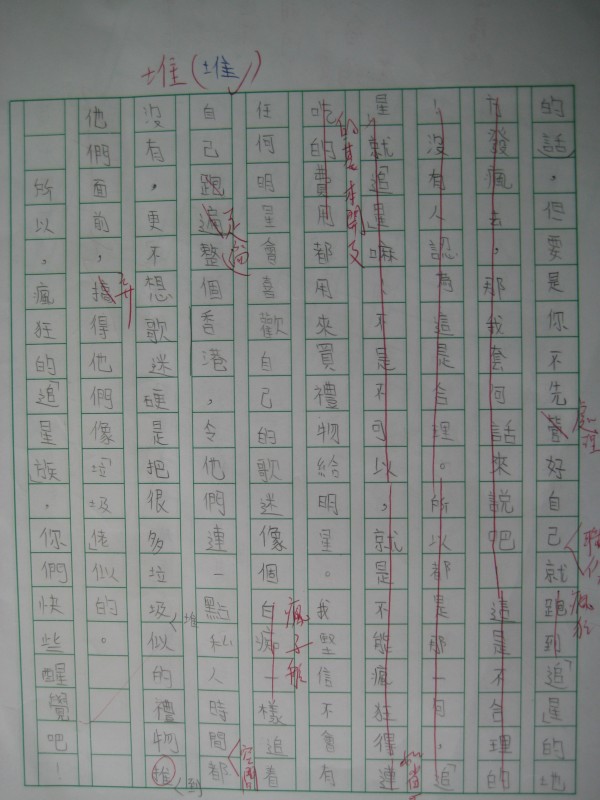 堆(堆)
的話,但要是你不先營好自己就跑到追星的地
方發瘋去,那我套何話來說吧!這是不合理的
!沒有人認為這是合理。所以都是那一句,追
星就追星嘛!不是不可以,就是不能瘋狂得連
吃的費用都用來買禮物給明星。我堅信不會有
任何明星會喜歡自己的歌迷像個白痴一樣追着
自己跑遍整個香港,令他們連一點私人時間都
沒有,更不想歌迷硬是把很多垃圾似的禮物推
他們面前,擠得他們像垃圾佬似的。
所以,瘋狂的追星族,你們快些醒覺吧!
處理
瘋狂
的基本開支
瘋子般
空間
到
堆